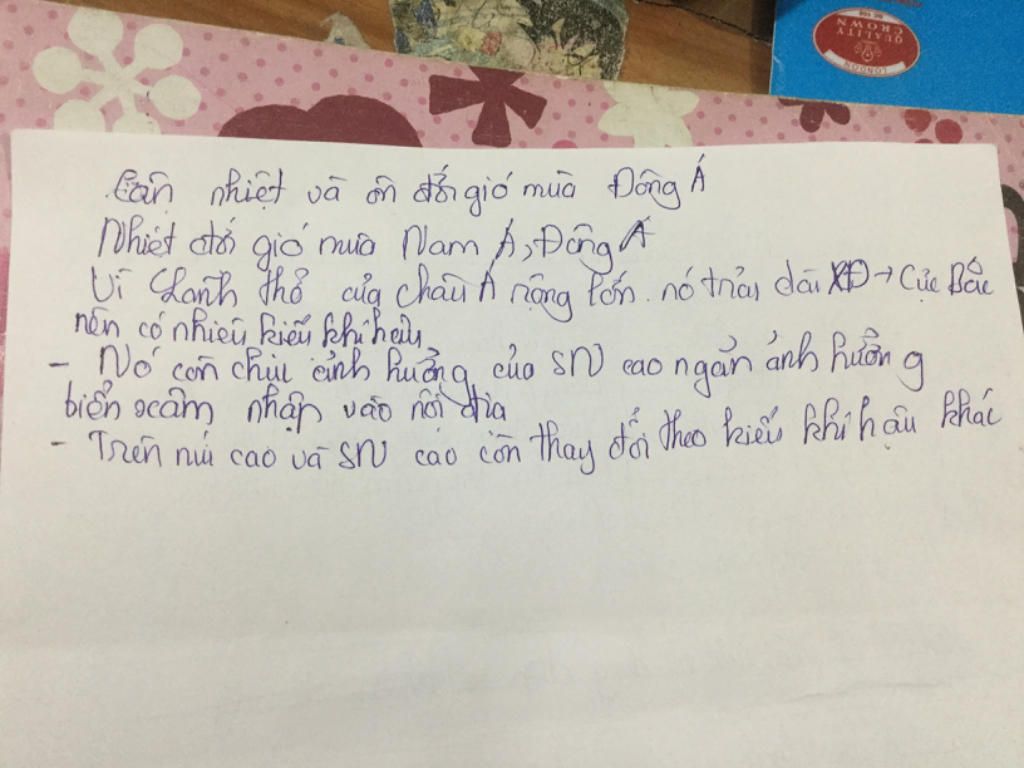 QUALITY
CROWN
LONDON
Cận nhiệt và ôn đới gió mùa Đông Á
Nhiệt đới gió mùa Nam Á, Đông Á
Vì lãnh thổ của châu Á rộng lớn. nó trải dài XĐ → Cực Bắc
nên có nhiều kiểu khí hậu
- Nó còn chịu ảnh hưởng của SN cao ngăn ảnh hưởng
biển xâm nhập vào nội địa
- Trên núi cao và SN cao còn thay đổi theo kiểu khí hậu khác